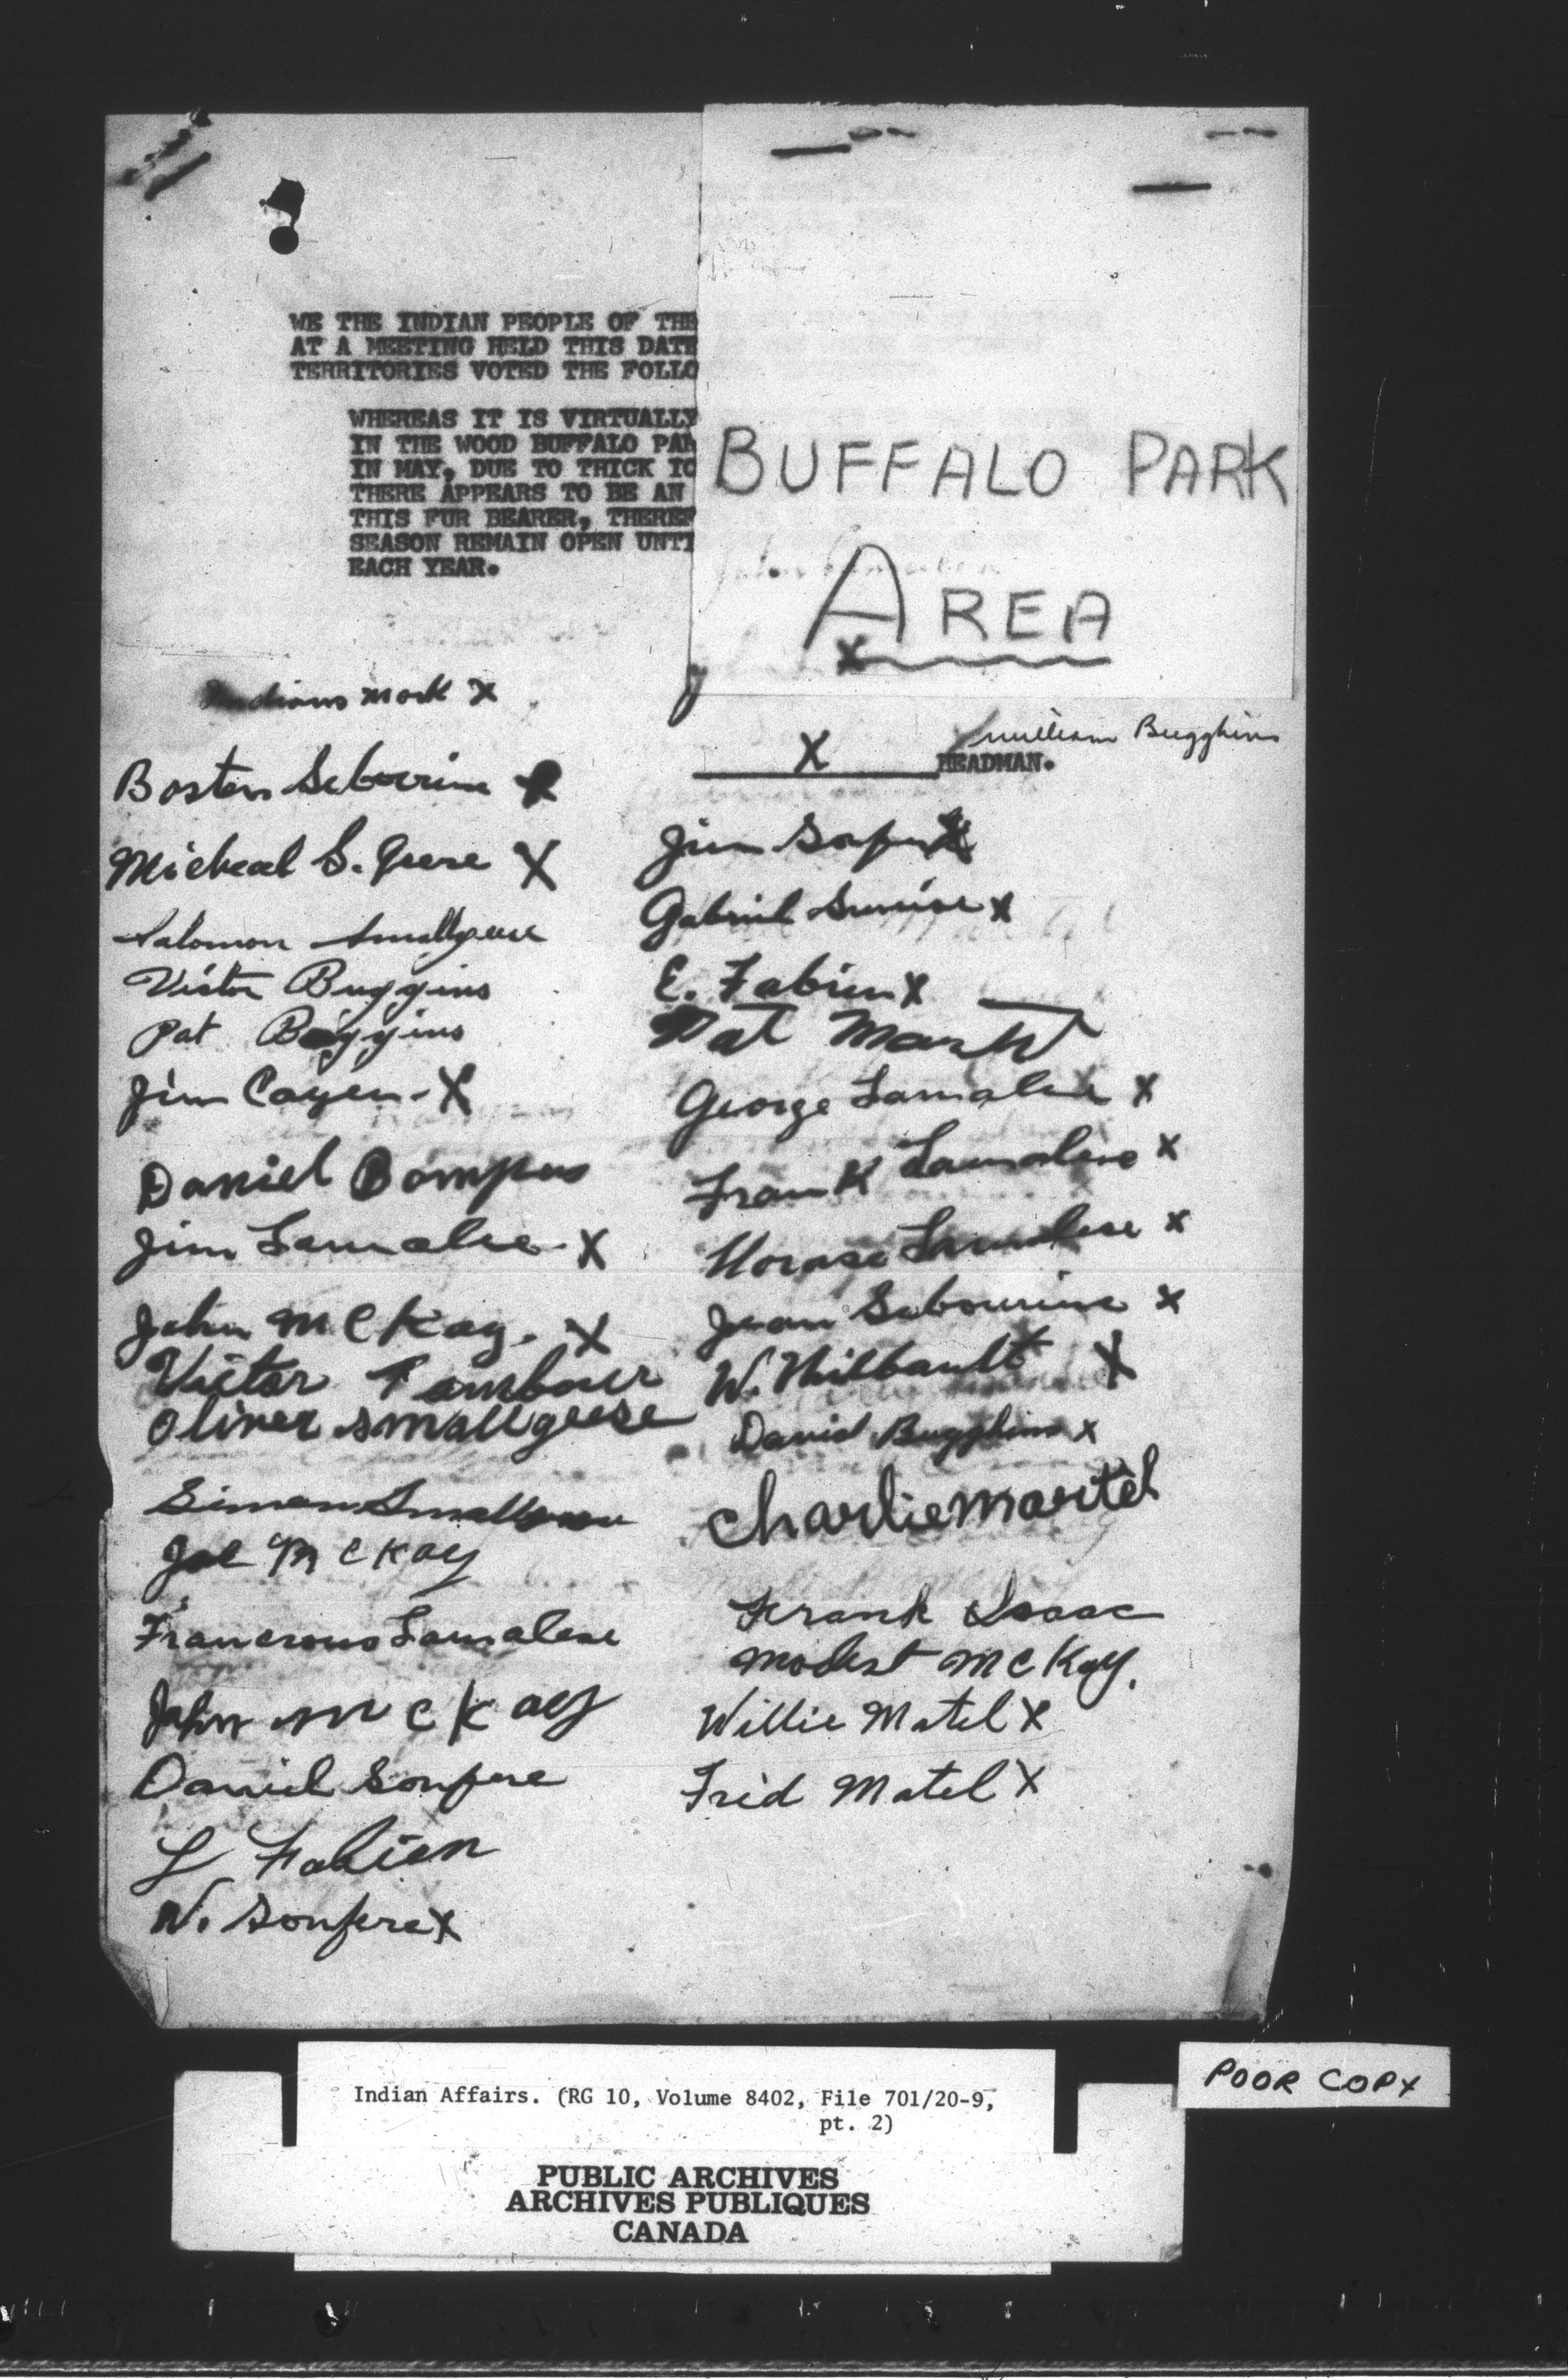 WE THE INDIAN PEOPLE OF THE
AT A MEETING HELD THIS DATE
TERRITORIES VOTED THE FOLLO
WHEREAS IT IS VIRTUALLY
IN THE WOOD BUFFALO PAR
IN MAY, DUE TO THICK IC
THERE APPEARS TO BE AN
THIS FUR BEARER, THEREF
SEASON REMAIN OPEN UNTI
EACH YEAR.
BUFFALO PARK
AREA
X
Indians mark X
X William Bugghins
HEADMAN.
Bosten Sebourine X
Micheal S. Geese X
Salomon Smallgeese
Victor Buggins
Pat Buggins
Jim Cayen. X
Daniel Bompus
Jim Lamalee X
John McKay. X
Victor Tambour
Oliver smallgeese
Simon Small
Joe McKay
Francrous Lamalese
John McKay
Daniel Sonfere
L Fabien
W. Sonfere X
Jim X
Gabriel Sunrise X
E. Fabien X
Pat Martel
George Lamalese X
Frank Lamalese X
Horase Lamalese X
Jean Sebourine X
W. Thilbault X
David Bugghins X
Charlie martel
Frank Isaac
Modest McKay.
Willie Matel X
Frid Matel X
Indian Affairs. (RG 10, Volume 8402, File 701/20-9,
pt. 2)
POOR COPY
PUBLIC ARCHIVES
ARCHIVES PUBLIQUES
CANADA